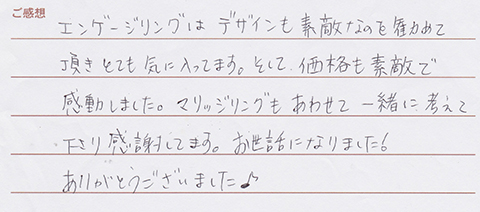 ご感想
エンゲージリングは デザインも 素敵なのを 勧めて
頂き とても 気に入ってます。そして、価格も素敵で
感動しました。マリッジリングも あわせて 一緒に 考えて
下さり 感謝してます。お世話になりました!
ありがとうございました♪